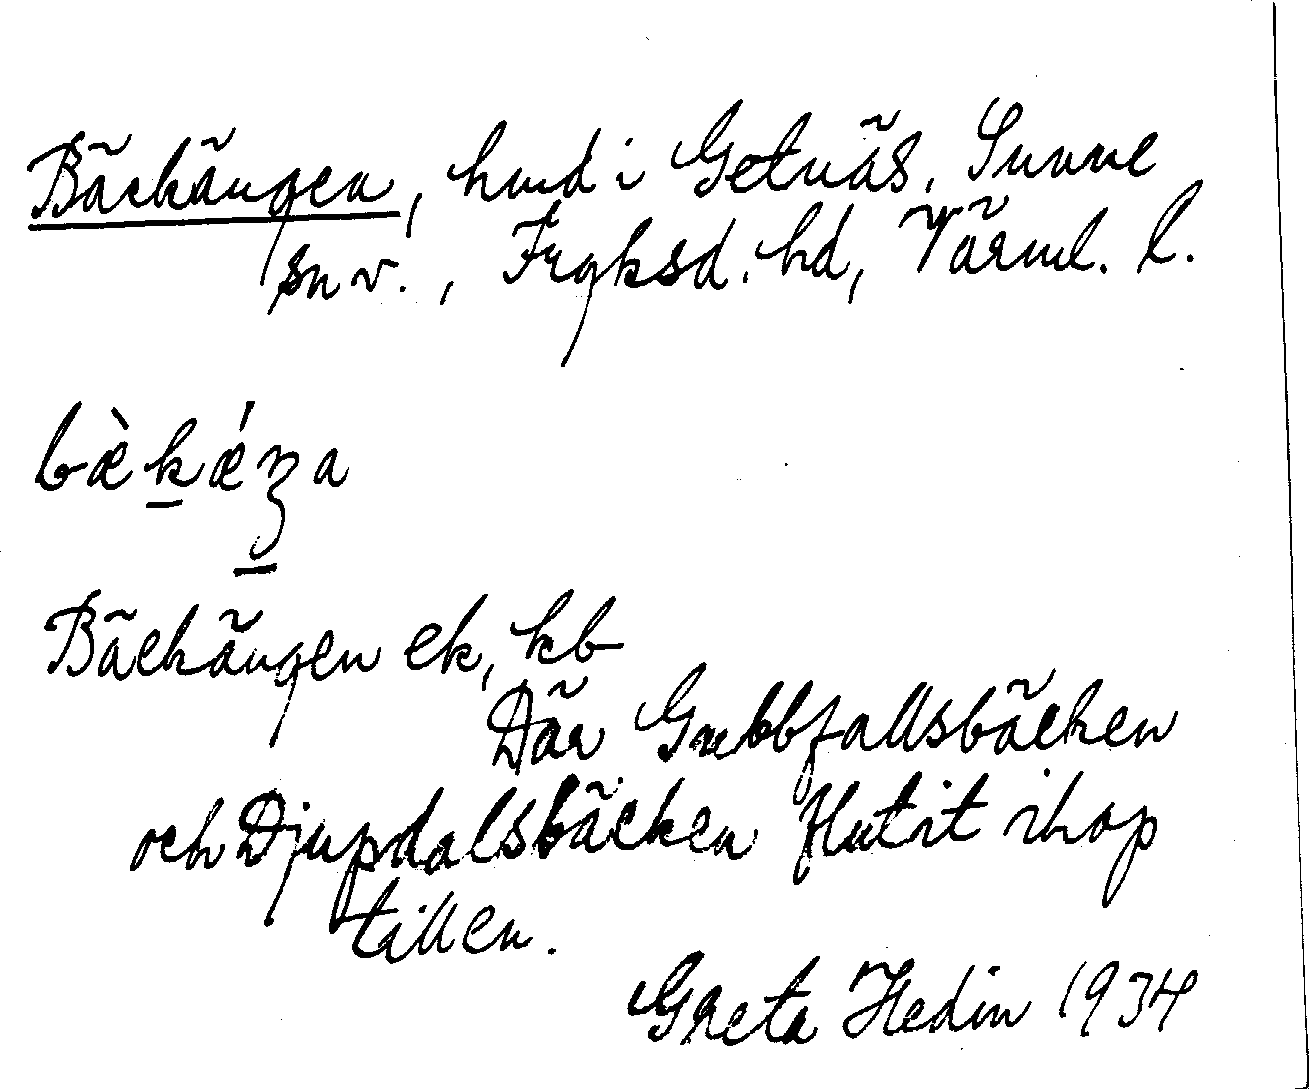 Bäckängen, hmd i Getnäs, Sunne
sn v., Fryksd. hd, Värml. l.
bæ̀kǽŋa
Bäckängen ek, kb
Där Gubbfallsbäcken
och Djupdalsbäcken flutit ihop
till en.
Greta Hedin 1934